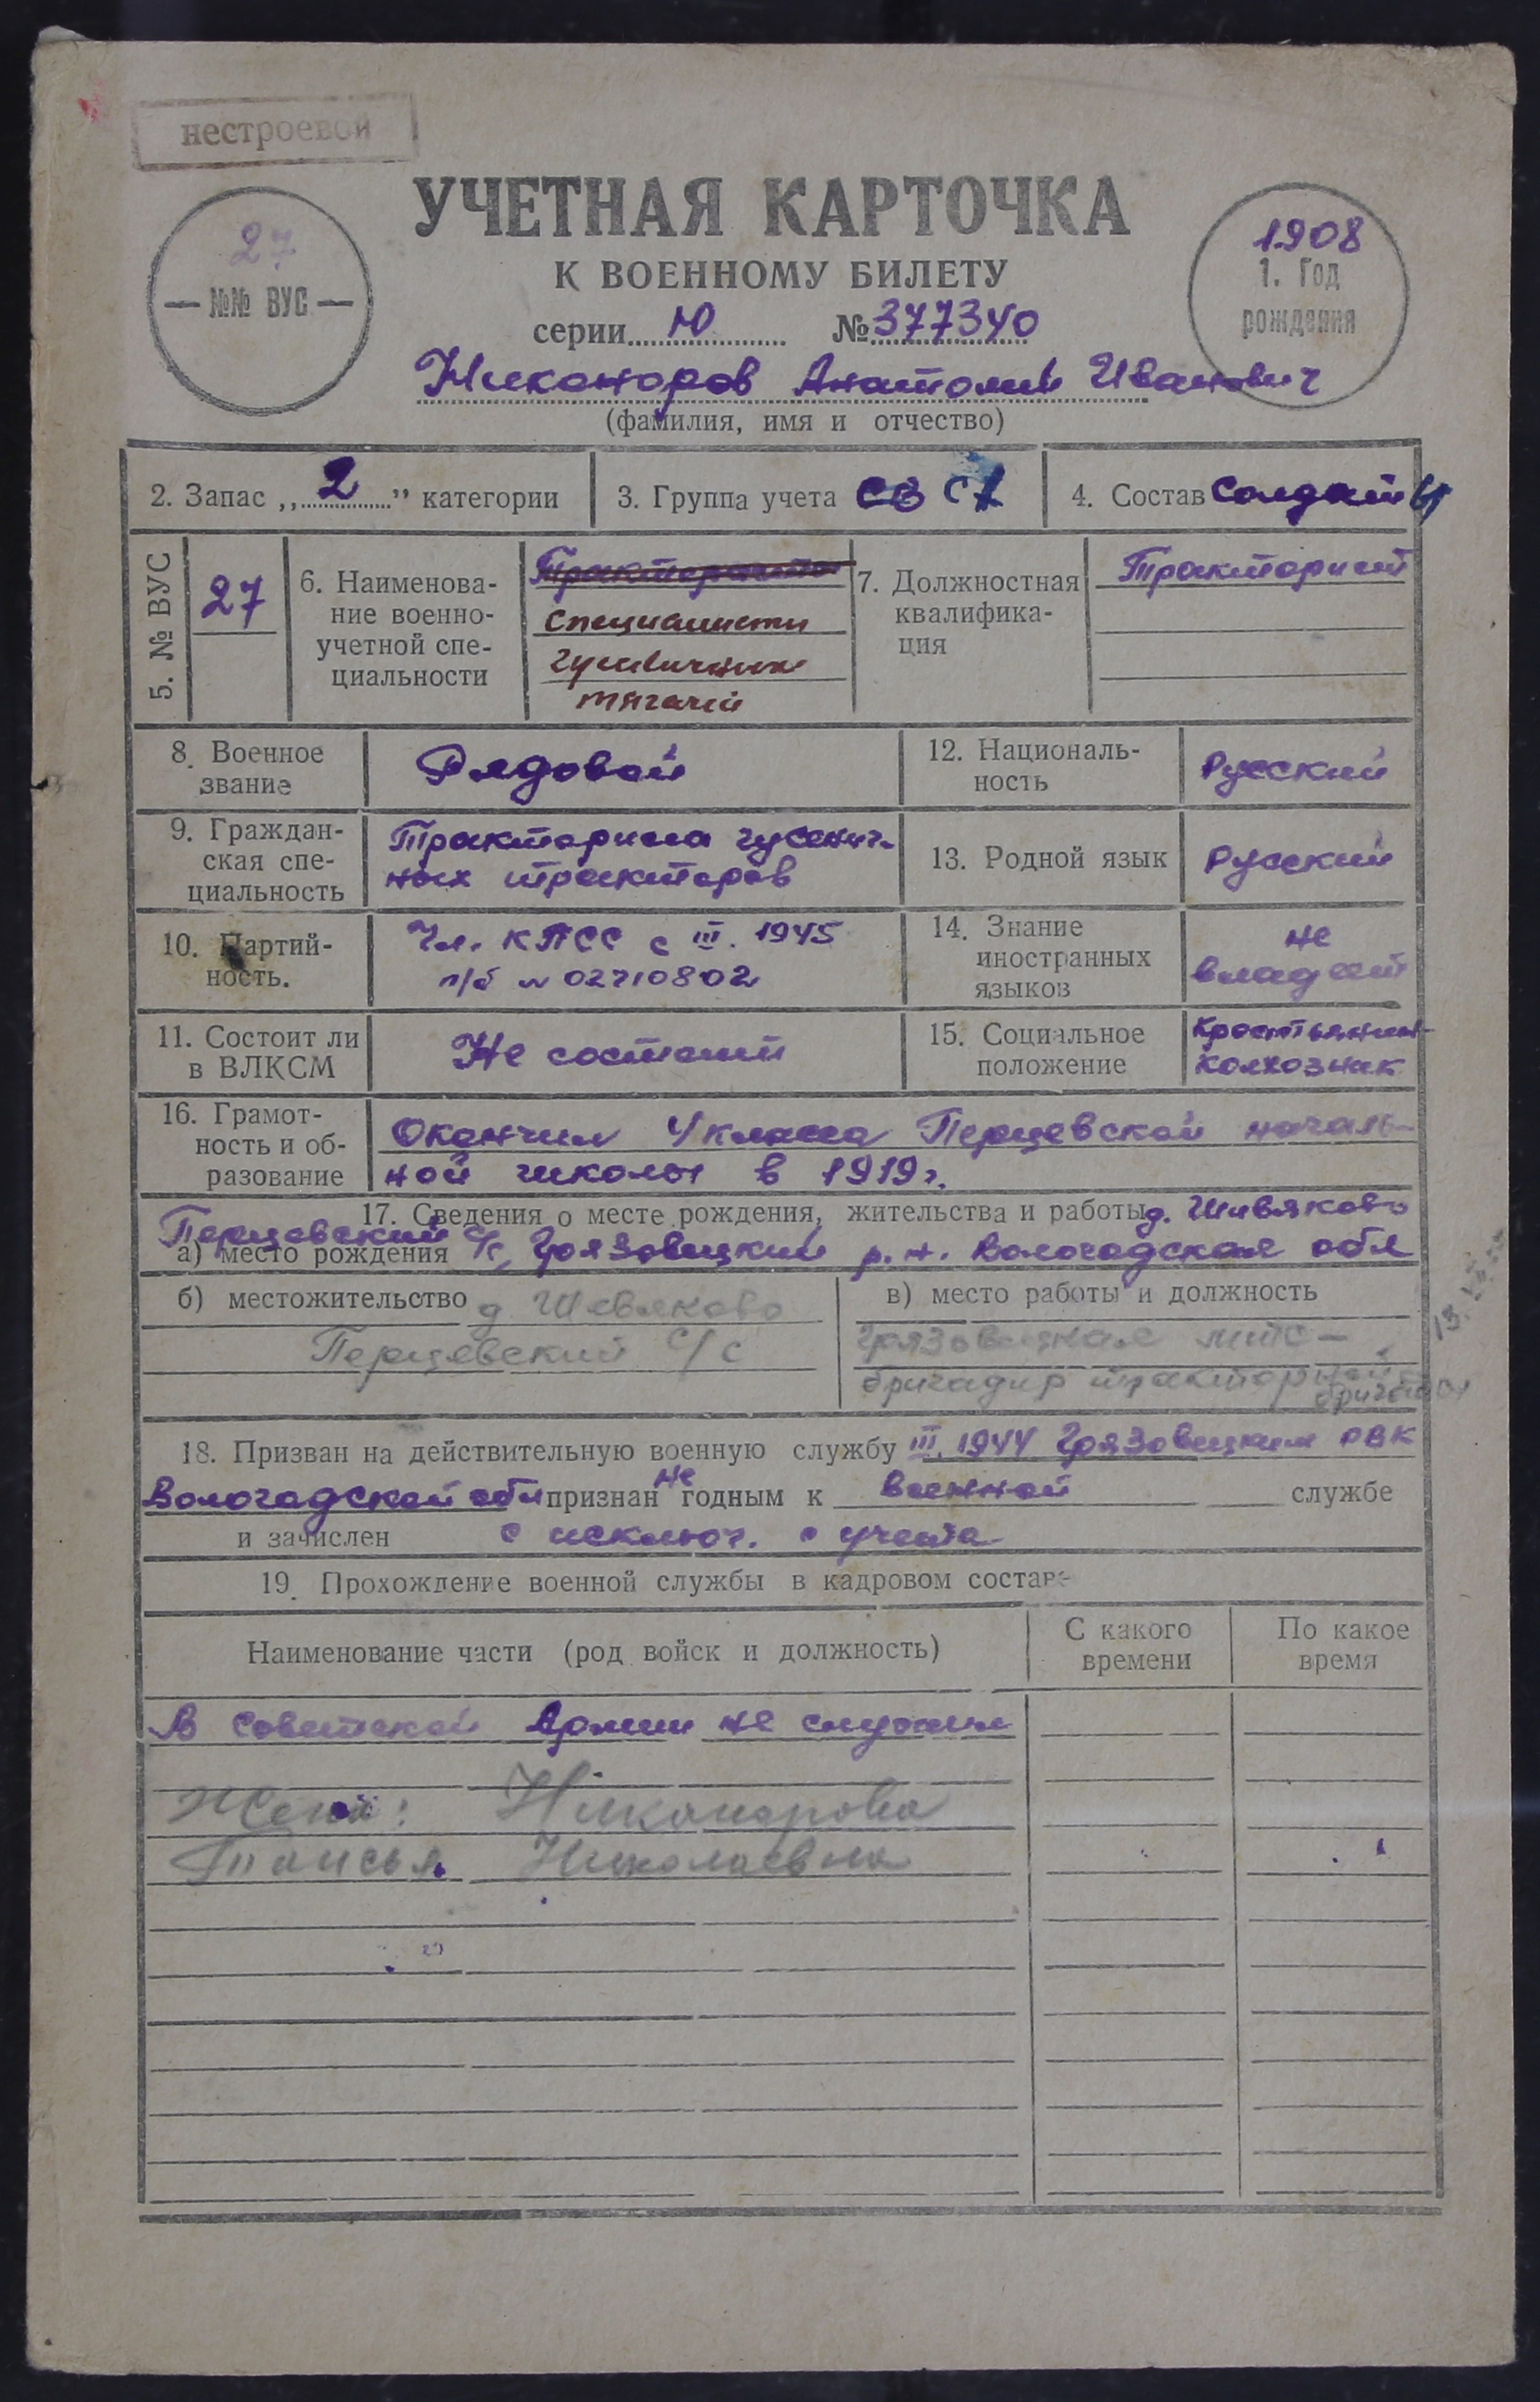 нестроевой
УЧЕТНАЯ КАРТОЧКА
К ВОЕННОМУ БИЛЕТУ
27
№№ ВУС
1908
1. Год
рождения
серии Ю № 377340
Никаноров Анатолий Иванович
(фамилия, имя и отчество)
2. Запас „2” категории
3. Группа учета СВ СА
4. Состав Солдаты
5. № ВУС
27
6. Наименова-
ние военно-
учетной спе-
циальности
Трактористы
специалисты
гусеничных
тягачей
7. Должностная
квалифика-
ция
Тракторист
8. Военное
звание
Рядовой
12. Националь-
ность
Русский
9. Граждан-
ская спе-
циальность
Тракториста гусенич-
ных тракторов
13. Родной язык
Русский
10. Партий-
ность.
Чл. КПСС с III. 1945
п/б № 02710802
14. Знание
иностранных
языков
не
владеет
11. Состоит ли
в ВЛКСМ
Не состоит
15. Социальное
положение
Крестьянин-
колхозник
16. Грамот-
ность и об-
разование
Окончил 4 класса Перцевской началь-
ной школы в 1919 г.
17. Сведения о месте рождения, жительства и работы д. Шивяково
а) место рождения Перцевский с/с, Грязовецкий р.н. Вологодская обл
б) местожительство д. Шивяково
Перцевский с/с
в) место работы и должность
Грязовецкая мтс –
бригадир тракторной
бригады
18. Призван на действительную военную службу III. 1944 Грязовецким РВК
Вологодской обл признан не годным к военной службе
и зачислен с исключ. с учета
19. Прохождение военной службы в кадровом составе
Наименование части (род войск и должность)
С какого
времени
По какое
время
В Советской Армии не служил
Жена: Никанорова
Таисья Николаевна